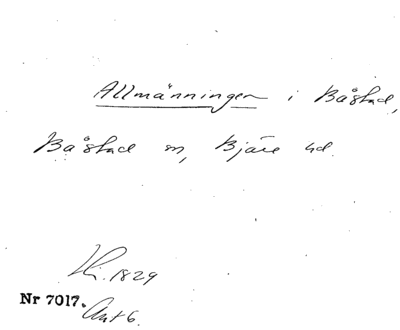 Allmänningen i Båstad,
Båstad sn, Bjäre hd.
Hi. 1829
Nr 7017.
Ant 6.